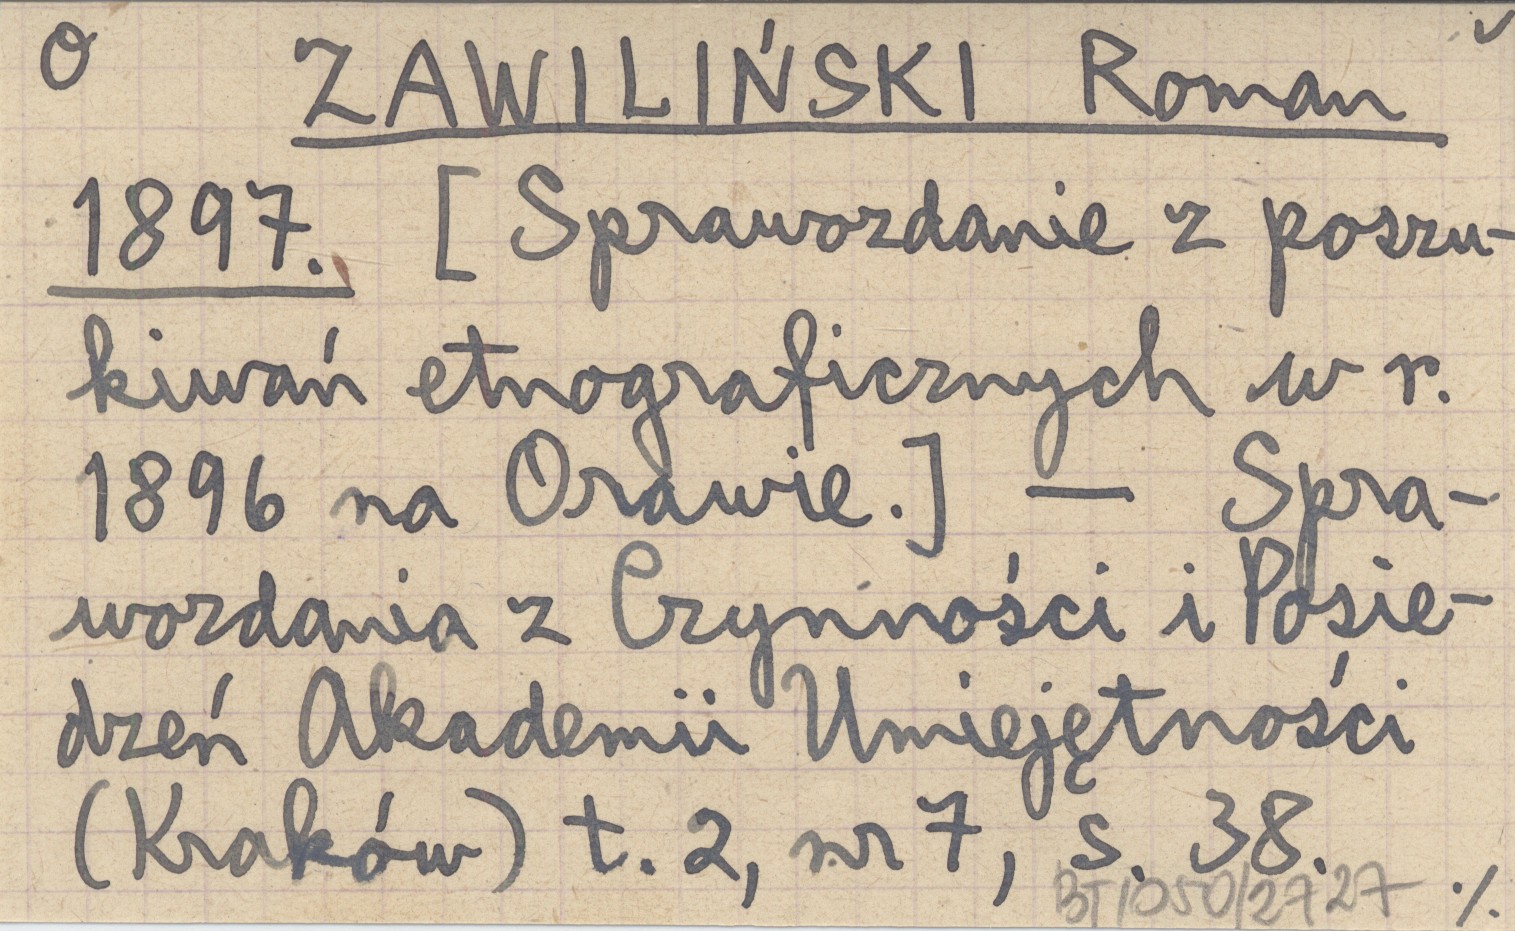 O ZAWILIŃSKI Roman ✓
1897. [Sprawozdanie z poszu-
kiwań etnograficznych w r.
1896 na Orawie.] — Spra-
wozdania z Czynności i Posie-
dzeń Akademii Umiejętności
(Kraków) t. 2, nr 7, s. 38.
BT/050/2727 ./.